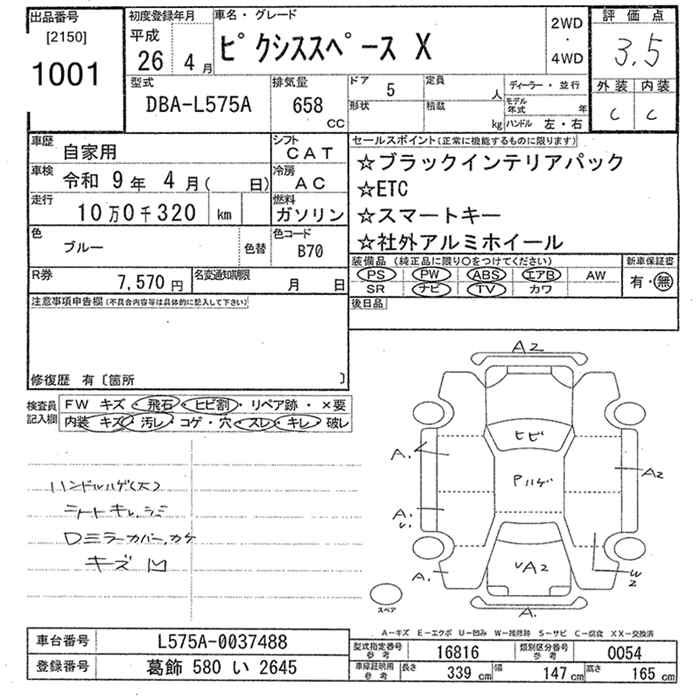 出品番号 [2150] 1001
初度登録年月 平成 26年 4月
車名・グレード ピクシススペース X
2WD ・ 4WD
評価点 3.5
外装 内装
C C
型式 DBA-L575A
排気量 658 CC
ドア 5
形状
定員 人
積載 kg
ディーラー・並行
モデル年式 年
ハンドル 左・右
車歴 自家用
シフト CAT
車検 令和 9年 4月( 日)
冷房 AC
走行 10万0千320 km
燃料 ガソリン
色 ブルー 色替
色コード B70
R券 7,570円
名変通知期限 月 日
セールスポイント(正常に機能するものに限ります)
☆ブラックインテリアパック
☆ETC
☆スマートキー
☆社外アルミホイール
装備品 (純正品に限り○をつけてください) 新車保証書
PS PW ABS エアB AW 有・無
SR ナビ TV カワ
後日品
注意事項申告欄(不具合内容等は具体的に記入して下さい)
修復歴 有〔箇所 〕
検査員記入欄
FW キズ・飛石・ヒビ割・リペア跡・×要
内装 キズ・汚レ・コゲ・穴・スレ・キレ・破レ
ハンドルハゲ(大)
シートキレ,シミ
ミラーカバー,カケ
キズ 凹
A2
ヒビ
A.
Pハゲ
A2
A.
A.
A2
W2
A.
スペア
A-キズ E-エクボ U-凹み W-補修跡 S-サビ C-腐食 XX-交換済
車台番号 L575A-0037488
登録番号 葛飾 580 い 2645
型式指定番号 参考 16816
類別区分番号 参考 0054
車庫証明用 参考 長さ 339 cm 幅 147 cm 高さ 165 cm